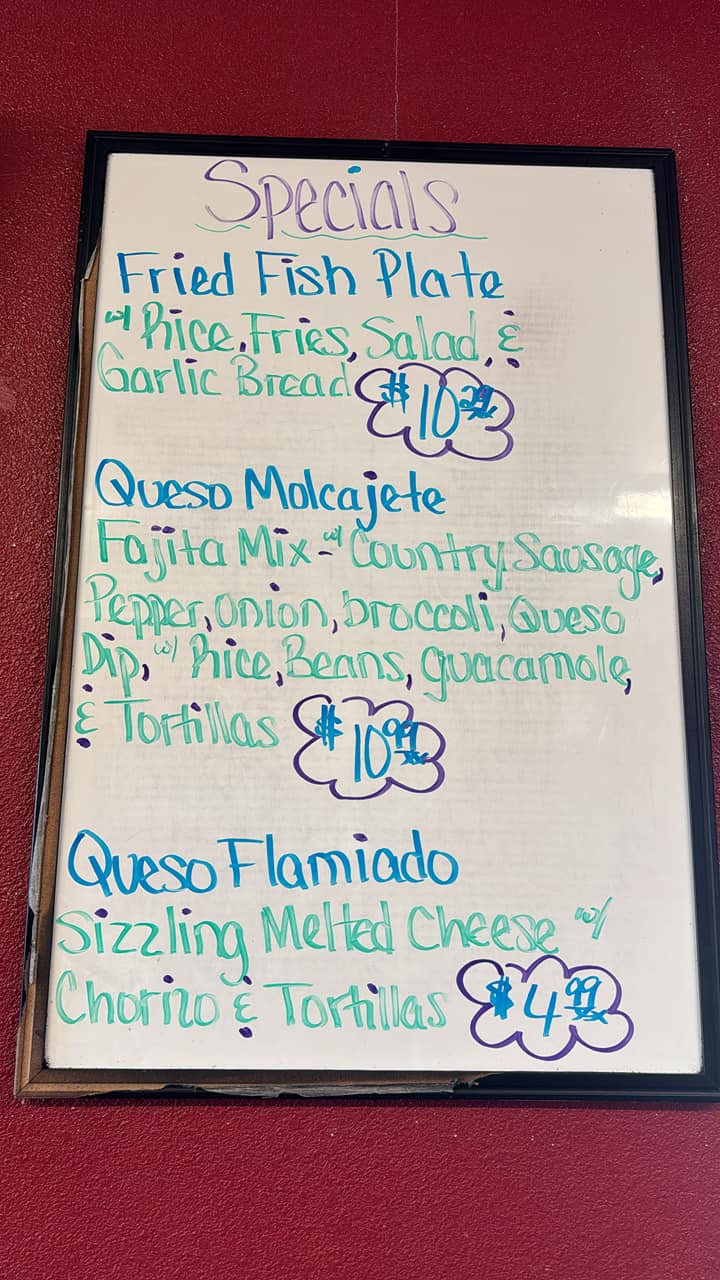 Specials
Fried Fish Plate
w/ Rice, Fries, Salad, &
Garlic Bread $10
Queso Molcajete
Fajita Mix - w/ Country Sausage,
Pepper, Onion, broccoli, Queso
Dip, w/ Rice, Beans, guacamole,
& Tortillas $10.99
Queso Flamiado
Sizzling Melted Cheese w/
Chorizo & Tortillas $4.99